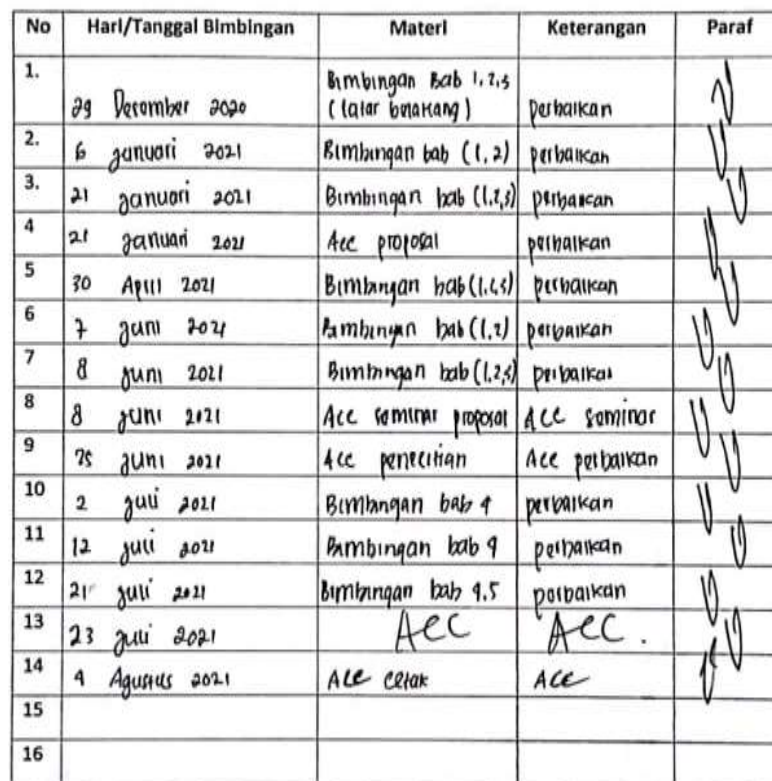 No Hari/Tanggal Bimbingan Materi Keterangan Paraf
1. 29 Desember 2020 Bimbingan Bab 1,2,3 (latar belakang) perbaikan
2. 6 Januari 2021 Bimbingan bab (1,2) perbaikan
3. 21 Januari 2021 Bimbingan bab (1,2,3) perbaikan
4 21 Januari 2021 Acc proposal perbaikan
5 30 April 2021 Bimbingan bab (1,2,3) perbaikan
6 7 Juni 2021 Bimbingan bab (1,2) perbaikan
7 8 Juni 2021 Bimbingan bab (1,2,3) perbaikan
8 8 Juni 2021 Acc seminar proposal Acc seminar
9 25 Juni 2021 Acc penelitian Acc perbaikan
10 2 Juli 2021 Bimbingan bab 4 perbaikan
11 12 Juli 2021 Bimbingan bab 4 perbaikan
12 21 Juli 2021 Bimbingan bab 4,5 perbaikan
13 23 Juli 2021 Acc Acc.
14 4 Agustus 2021 Acc cetak Acc
15
16